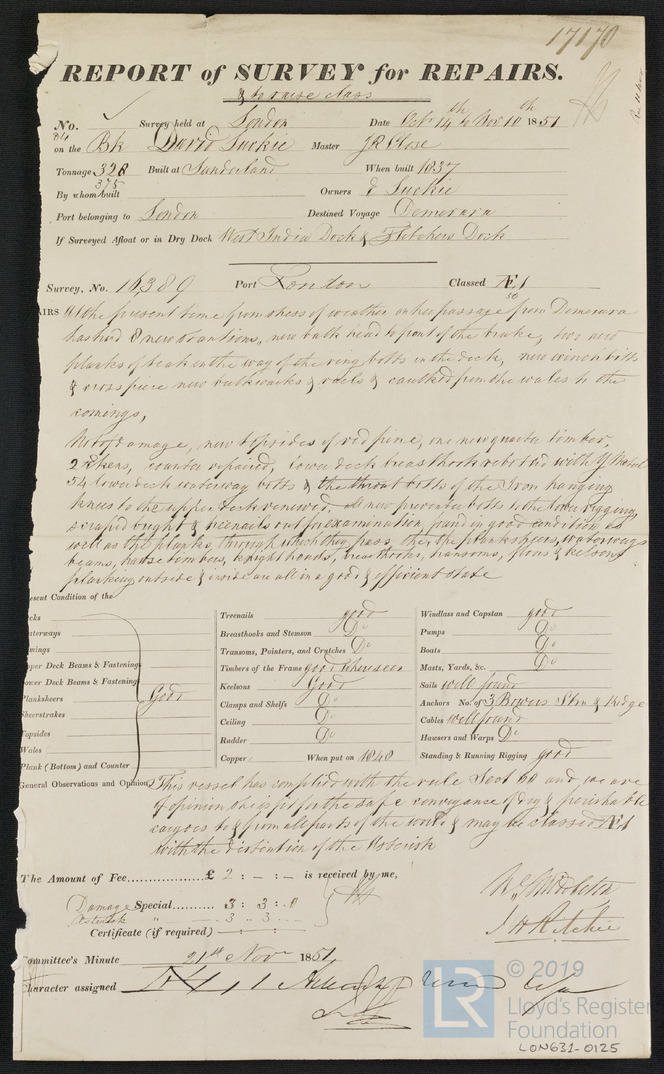 17170
REPORT of SURVEY for REPAIRS.
& to raise class
No. Survey held at London Date Octr 14th to Nov 10th 1851
on the Bk David Luckie Master JR Close
Tonnage 328 Built at Sunderland When built 1837
375
By whom built Owners J Luckie
Port belonging to London Destined Voyage Demerara
If Surveyed Afloat or in Dry Dock West India Dock & Fletchers Dock
Survey, No. 16389 Port London Classed Æ1
AIRS At the present time from stress of weather on her passage from Demerara
has had 8 new stantions, new bulk head to front of the brake, two new
planks of teak in the way of the ring bolts in the deck, new winch bitts
& crosspiece new bulwarks & rails & caulked from the wales to the
comings,
Not of damage, new topsides of red pine, one new quarter timber,
counter repaired, lower deck breasthook rebolted with Y Metal
54 lower deck waterway bolts & the throat bolts of the Iron hanging
knees to the upper deck renewed, all new preventer bolts to the lower rigging,
scraped bright & treenails out for examination, found in good condition as
well as the planks, through which they pass, the planksheers, waterways
beams, hawse timbers, knightheads, breasthooks, transoms, floors & keelsons
planking outside & inside are all in a good & efficient state
esent Condition of the
ecks
aterways
mings
pper Deck Beams & Fastenings
ower Deck Beams & Fastenings
Planksheers Good
Sheerstrakes
Topsides
Wales
Plank (Bottom) and Counter
Treenails good
Breasthooks and Stemson Do
Transoms, Pointers, and Crutches Do
Timbers of the Frame good where seen
Keelsons Good
Clamps and Shelfs Do
Ceiling Do
Rudder Do
Copper When put on 1848
Windlass and Capstan good
Pumps Do
Boats Do
Masts, Yards, &c. Do
Sails well found
Anchors No. of 3 Bowers Strm & Kedge
Cables well found
Hawsers and Warps Do
Standing & Running Rigging good
General Observations and Opinion, This vessel has complied with the rule Sect 60 and we are
of opinion she is fit for the safe conveyance of dry & perishable
cargoes to & from all parts of the world & may be classed Æ1
with the distinction of the Asterisk
The Amount of Fee £ 2 : - : - is received by me,
Damage Special 3 : 3 : 0
Asterisk " 3 : 3 : -
Certificate (if required) : :
J H Ritchie
ommittee's Minute 21st Novr 1851
Character assigned
© 2019
LR
Lloyd's Register
Foundation
LON631-0125